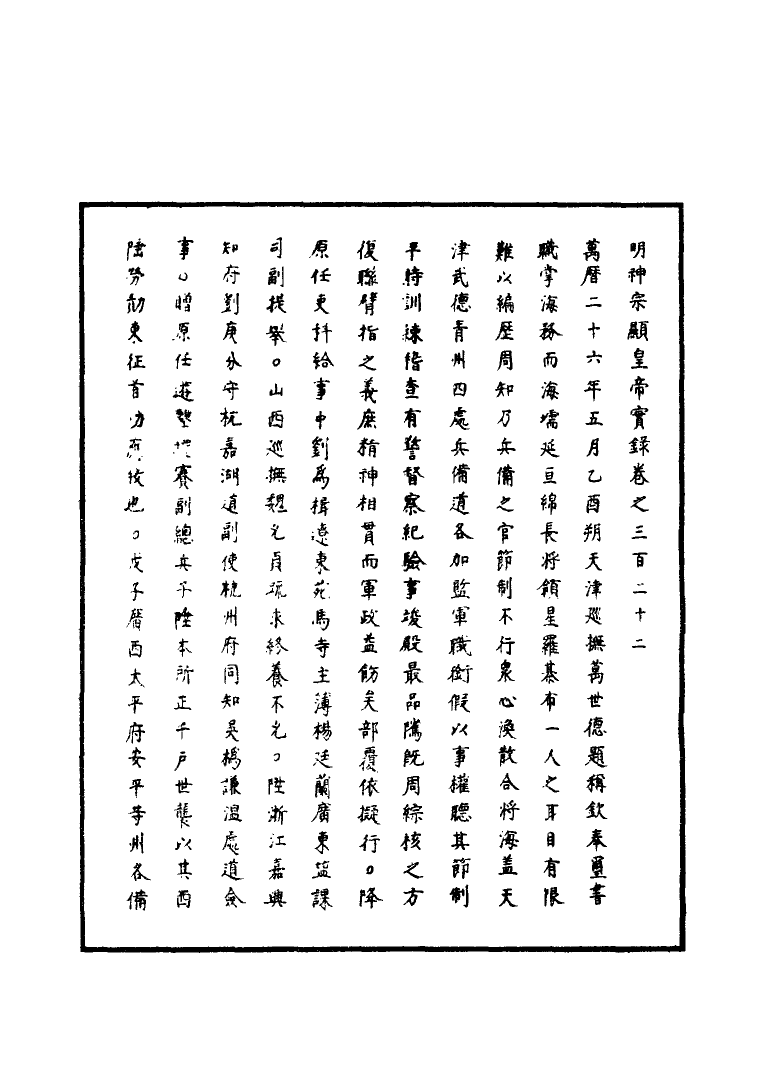 明神宗顯皇帝實錄卷之三百二十二
萬曆二十六年五月乙酉朔天津巡撫萬世德題稱欽奉璽書
職掌海務而海壖延亘綿長將領星羅棊布一人之耳目有限
難以編歷周知乃兵備之官節制不行衆心渙散合將海蓋天
津武德青州四處兵備道各加監軍職銜假以事權聽其節制
平時訓練稽查有警督察紀驗事竣殿最品隲既周綜核之方
復聯臂指之義庶精神相貫而軍政益飭矣部覆依擬行○降
原任吏科給事中劉為楫遼東苑馬寺主簿楊廷蘭廣東鹽課
司副提舉○山西巡撫魏允貞疏求終養不允○陞浙江嘉興
知府劉庚分守杭嘉湖道副使杭州府同知吳橋謙溫處道僉
事○贈原任遊擊賽副總兵子陞本所正千戶世襲以其西
陲勞勣東征首功也○戊子廣西太平府安平等州各備